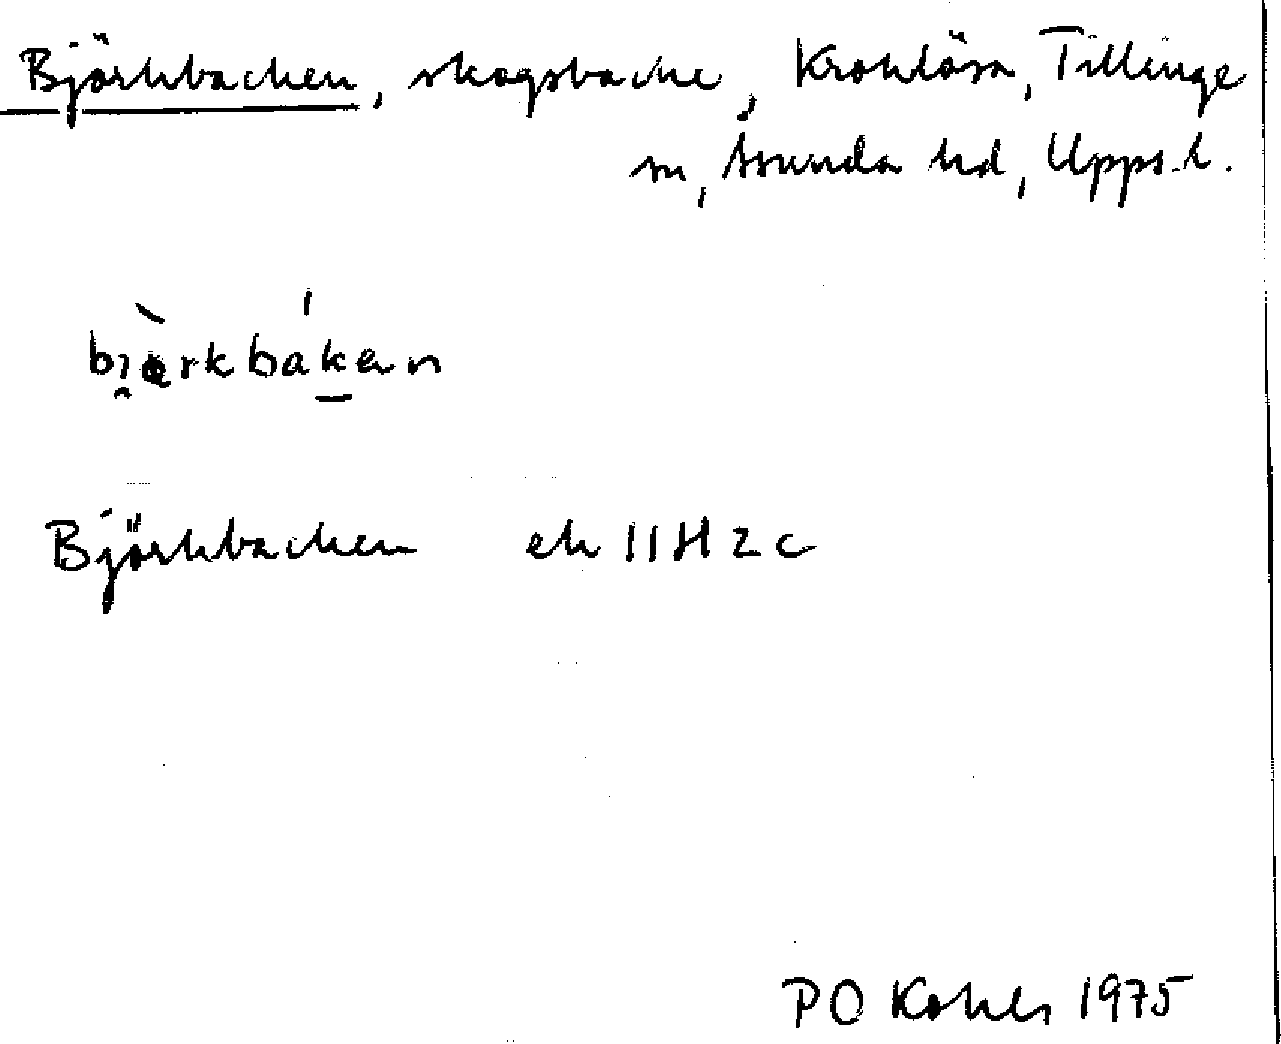 Björkbacken, skogsbacke, Kroklösa, Tillinge
sn, Åsunda hd, Upps. l.
bjòrkbákan
Björkbacken ek 11H 2 c
PO 1975